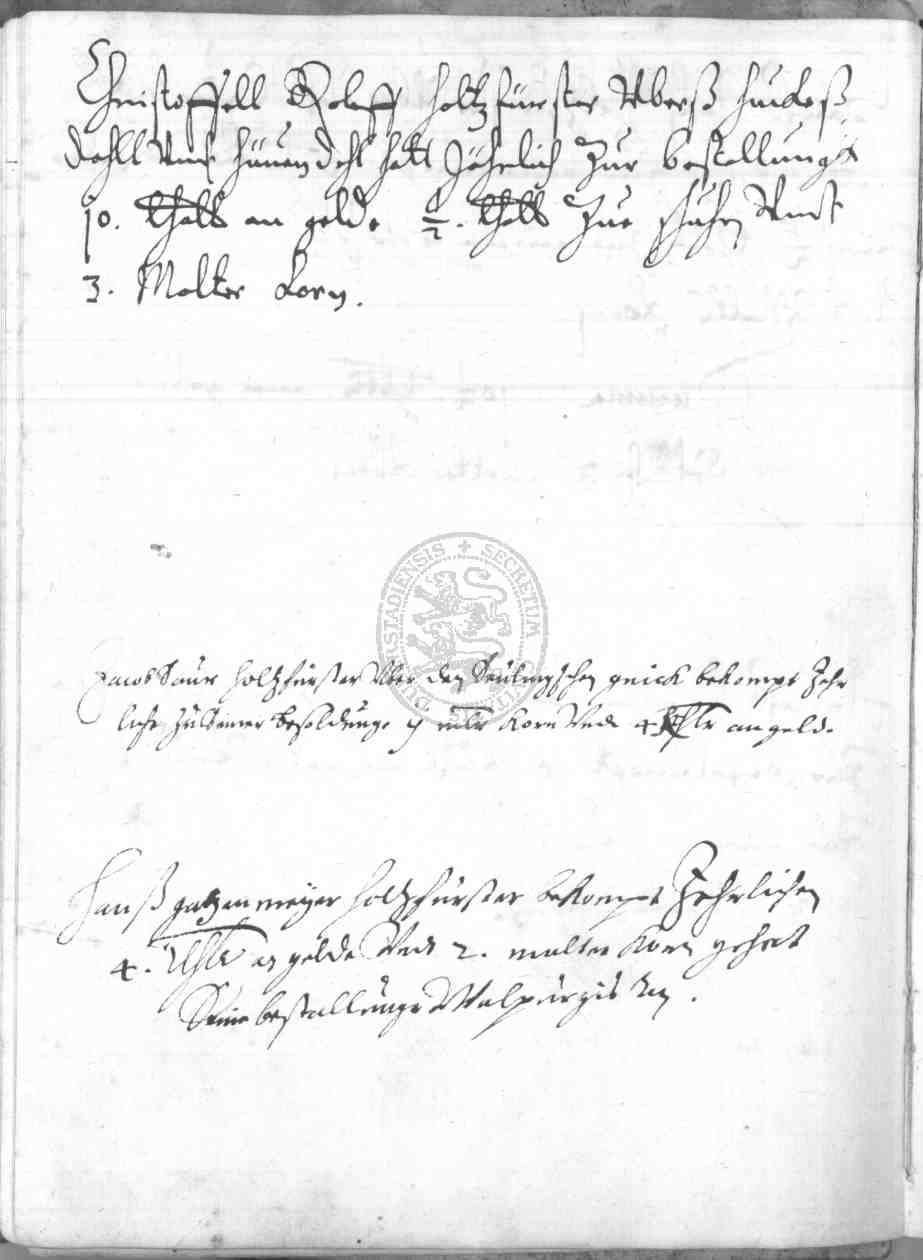 Christoffell Roleff holtzfürster Vberß Huckeß
dahll Vnd hauendahl hatt Jährlich Zur bestallunge
10. thall an gelde ½. thall Zue schuhn Vndt
3. Malter Korn.
SECRETUM
Jacob Saur holtzfürster Vber den Seulingschen gnick bekompt Jehr
liche zu seiner besoldunge mlr Korn Vnd 4 thlr an geld.
Hanß gatzenmeyer holtzfürster bekompt Jehrlichen
4. thlr an gelde Vnd 2. malter Korn gehet
Seine bestallunge Walpurgis an.